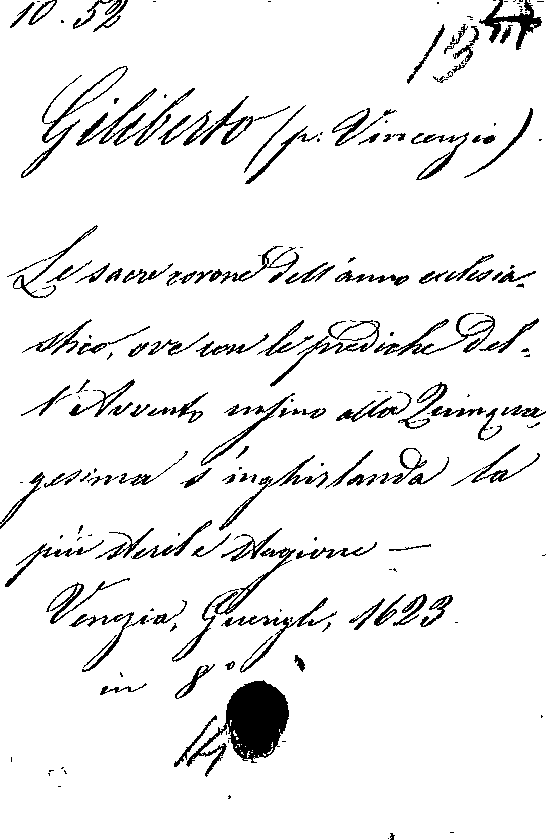 10.52
13
Giliberto (p: Vincenzio).
Le sacre corone dell'anno ecclesia-
stico, ove con le prediche del-
l'Avvento insino alla Quinqua-
gesima s'inghirlanda la
più sterile stagione —
Venezia, Guerigli, 1623.
in 8°